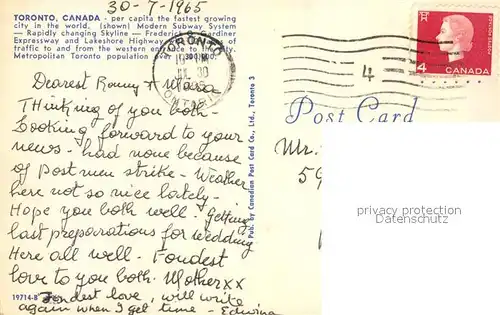 30-7-1965
TORONTO, CANADA - per capita the fastest growing
city in the world. (shown) Modern Subway System
— Rapidly changing Skyline — Frederick Gardiner
Expressway and Lakeshore Highway of
traffic to and from the western entrance to the city.
Metropolitan Toronto population over 
TORONTO
30
4
POSTES POSTAGE
4
CANADA
Dearest Ronny + 
Thinking of you both -
Looking forward to your
news - had none because
of Post men strike - Weather
here not so nice lately -
Hope you both well - getting
last preparations for wedding
Here all well - Fondest
love to you both. Mother xx
19714-B
Fondest love, will write
again when I get time - Edwina
Pub. by Canadian Post Card Co., Ltd., Toronto 3
Post Card
Mr.
59
privacy protection
Datenschutz